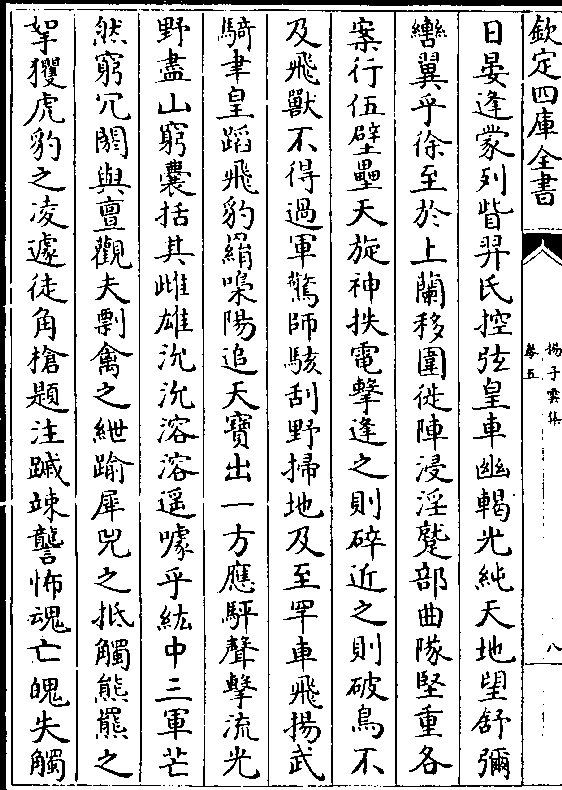 欽定四庫全書
揚子雲集
卷五
八
日晏逢蒙列眥羿氏控弦皇車幽輵光純天地望舒彌
轡翼乎徐至於上蘭移圍徙陣浸淫蹵部曲隊堅重各
案行伍壁壘天旋神抶電擊逢之則碎近之則破鳥不
及飛獸不得過軍驚師駭刮野掃地及至罕車飛揚武
騎聿皇蹈飛豹羂嘄陽追天寶出一方應駍聲擊流光
野盡山窮囊括其雌雄沇沇溶溶遥噱乎紘中三軍芒
然窮冘閼與亶觀夫剽禽之紲踰犀兕之抵觸熊羆之
挐玃虎豹之凌遽徒角槍題注䠞竦讋怖魂亡魄失觸